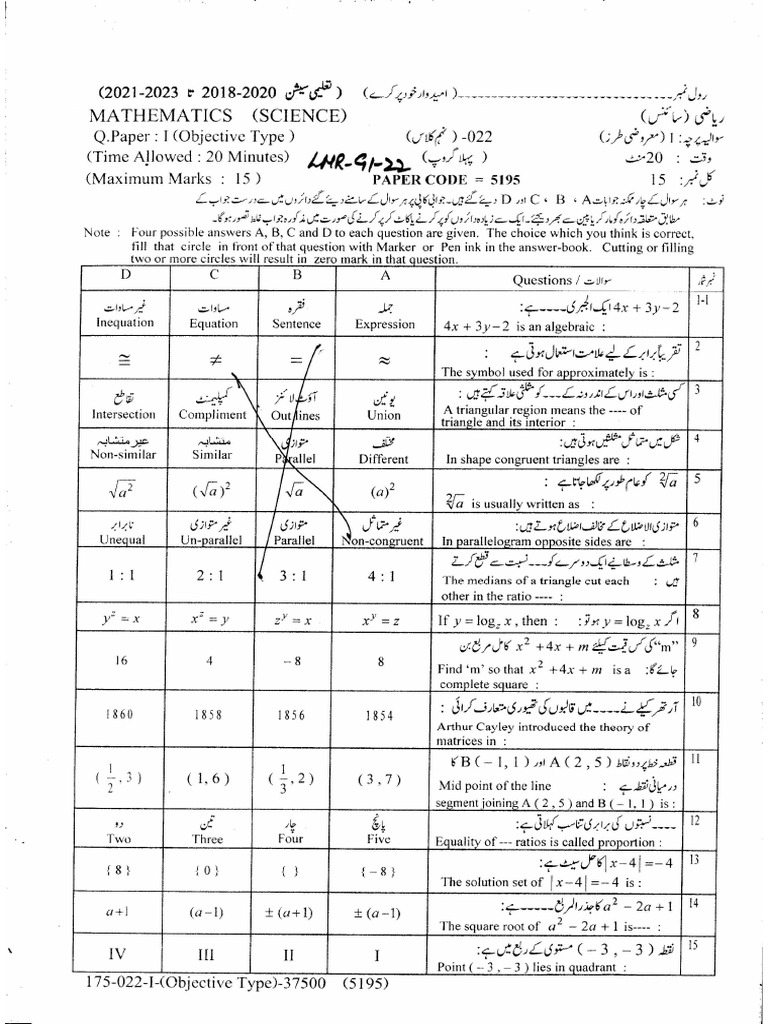 رول نمبر ـــــــــــــــــــ ( امیدوار خود پر کرے ) ( تعلیمی سیشن 2020-2018 تا 2023-2021 )
ریاضی (سائنس) MATHEMATICS (SCIENCE)
سوالیہ پرچہ : I (معروضی طرز) 022- (نہم کلاس) Q.Paper : I (Objective Type )
وقت : 20 منٹ ( پہلا گروپ ) LHR-G1-22 (Time Allowed : 20 Minutes)
کل نمبر: 15 PAPER CODE = 5195 (Maximum Marks : 15 )
نوٹ: ہر سوال کے چار ممکنہ جوابات A ، B ، C اور D دیئے گئے ہیں۔ جوابی کاپی پر ہر سوال کے سامنے دیئے گئے دائروں میں سے درست جواب کے
مطابق متعلقہ دائرہ کو مارکر یا پین سے بھر دیجئے۔ ایک سے زیادہ دائروں کو پر کرنے یا کاٹ کر پر کرنے کی صورت میں مذکورہ جواب غلط تصور ہو گا۔
Note : Four possible answers A, B, C and D to each question are given. The choice which you think is correct,
fill that circle in front of that question with Marker or Pen ink in the answer-book. Cutting or filling
two or more circles will result in zero mark in that question.
D C B A Questions / سوالات نمبر شمار
غیر مساوات مساوات فقرہ جملہ 4x + 3y – 2 ایک الجبری ۔۔۔۔ ہے: 1-1
Inequation Equation Sentence Expression 4x + 3y – 2 is an algebraic :
≅ ≠ = ≈ تقریباً برابر کے لیے علامت استعمال ہوتی ہے : 2
The symbol used for approximately is :
تقاطع کمپلیمنٹ آؤٹ لائنز یونین کسی مثلث اور اس کے اندرونہ کے ۔۔۔ کو مثلثی علاقہ کہتے ہیں: 3
Intersection Compliment Out lines Union A triangular region means the ---- of
triangle and its interior :
غیر متشابہ متشابہ متوازی مختلف شکل میں متماثل مثلثیں ہوتی ہیں: 4
Non-similar Similar Parallel Different In shape congruent triangles are :
√a² (√a)² √a (a)² ²√a کو عام طور پر لکھا جاتا ہے: 5
²√a is usually written as :
نابرابر غیر متوازی متوازی غیر متماثل متوازی الاضلاع کے مخالف اضلاع ہوتے ہیں: 6
Unequal Un-parallel Parallel Non-congruent In parallelogram opposite sides are :
1 : 1 2 : 1 3 : 1 4 : 1 مثلث کے وسطانیے ایک دوسرے کو ۔۔۔ نسبت سے قطع کرتے 7
The medians of a triangle cut each : ہیں
other in the ratio ---- :
yᶻ = x xᶻ = y zʸ = x xʸ = z If y = log_z x , then : اگر y = log_z x ہو تو: 8
16 4 – 8 8 “m” کی کس قیمت کیلئے x² + 4x + m کامل مربع بن 9
Find ‘m’ so that x² + 4x + m is a جائے گا:
complete square :
1860 1858 1856 1854 آرتھر کیلے نے ۔۔۔۔ میں قالبوں کی تھیوری متعارف کرائی : 10
Arthur Cayley introduced the theory of
matrices in :
( 1/2 , 3 ) ( 1, 6 ) ( 1/3 , 2 ) ( 3 , 7 ) قطعہ خط پر دو نقاط A ( 2 , 5 ) اور B ( – 1, 1 ) کا 11
Mid point of the line درمیانی نقطہ ہے :
segment joining A ( 2 , 5 ) and B ( – 1, 1 ) is :
دو تین چار پانچ ۔۔۔۔ نسبتوں کی برابری تناسب کہلاتی ہے: 12
Two Three Four Five Equality of --- ratios is called proportion :
{ 8 } { 0 } { } { – 8 } | x – 4 | = – 4 کا حل سیٹ ہے: 13
The solution set of | x – 4 | = – 4 is :
a+1 (a–1) ± (a+1) ± (a–1) a² – 2a + 1 کا جذر المربع ۔۔۔۔ ہے: 14
The square root of a² – 2a + 1 is---- :
IV III II I نقطہ ( – 3 , – 3 ) مستوی کے ربع میں ہے: 15
Point ( – 3 , – 3 ) lies in quadrant :
175-022-I-(Objective Type)-37500 (5195)